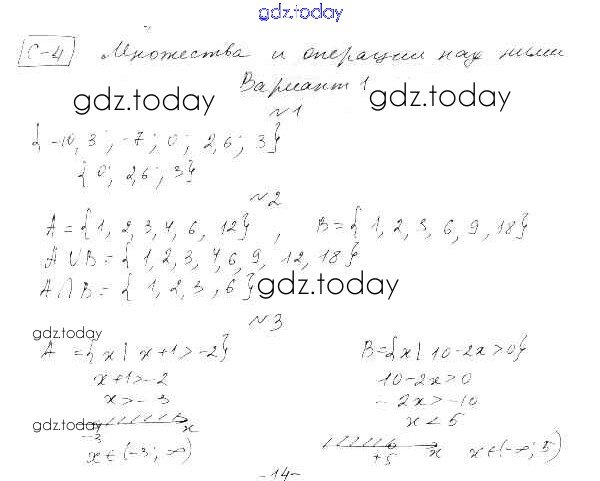 gdz.today
С-4 Множества и операции над ними
Вариант 1
gdz.today gdz.today
№1
{-10,3; -7; 0; 2,6; 3}
{0; 2,6; 3}
№2
A = {1, 2, 3, 4, 6, 12}, B = {1, 2, 3, 6, 9, 18}
A ∪ B = {1, 2, 3, 4, 6, 9, 12, 18}
A ∩ B = {1, 2, 3, 6} gdz.today
№3
gdz.today
A = {x | x+1 > -2} B = {x | 10-2x > 0}
x+1 > -2 10-2x > 0
x > -3 -2x > -10
x < 5
gdz.today
-3 x
+5 x
x ∈ (-3; ∞) x ∈ (-∞; 5)
gdz.today
-14-